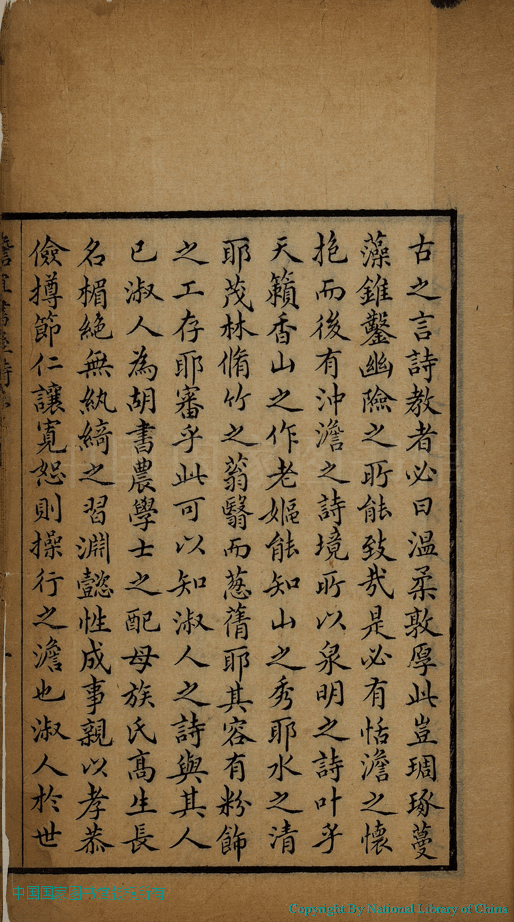 古之言詩教者必曰温柔敦厚此豈琱琢蔓
藻錐鑿幽險之所能致哉是必有恬澹之懷
抱而後有沖澹之詩境所以泉明之詩叶乎
天籟香山之作老嫗能知山之秀耶水之清
耶茂林脩竹之蓊翳而蔥蒨耶其容有粉飾
之工存耶審乎此可以知淑人之詩與其人
已淑人為胡書農學士之配母族氏高生長
名楣絶無紈綺之習淵懿性成事親以孝恭
儉撙節仁讓寛恕則操行之澹也淑人於世
Copyright By National Library of China